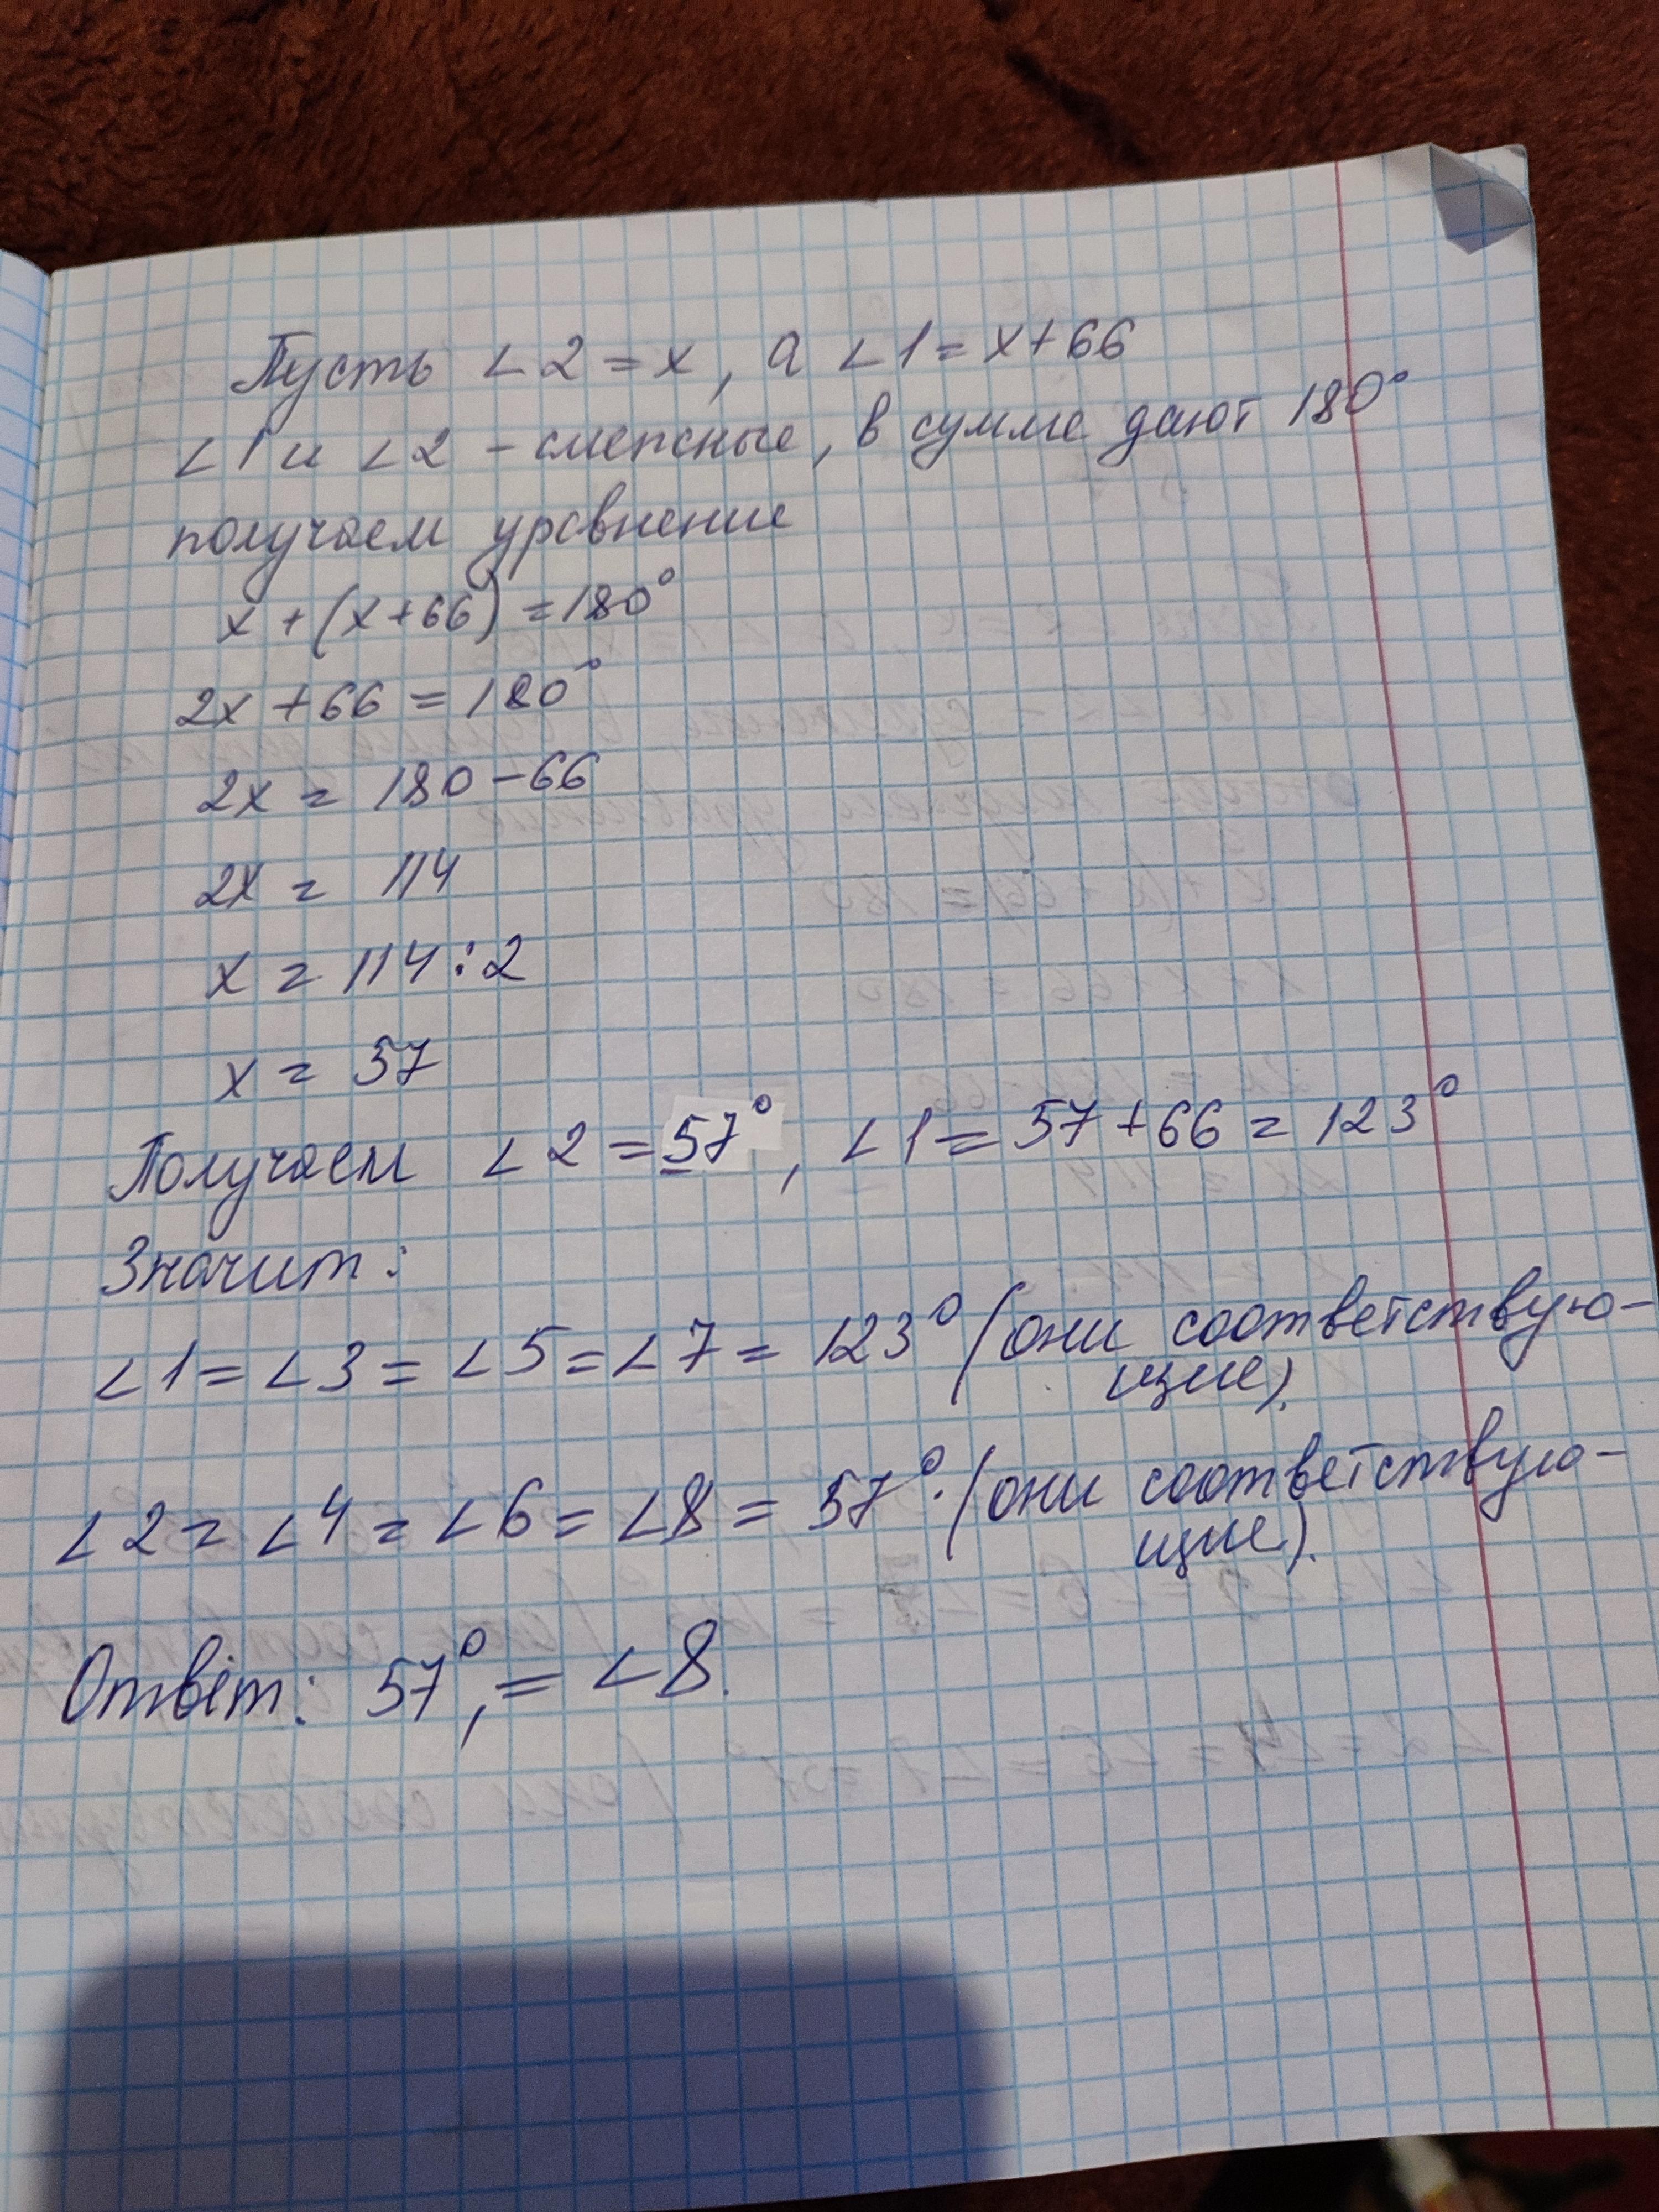 Пусть ∠2 = x, а ∠1 = x + 66
∠1 и ∠2 - смежные, в сумме дают 180°
получаем уравнение
x + (x + 66) = 180°
2x + 66 = 180°
2x = 180 - 66
2x = 114
x = 114 : 2
x = 57
Получаем ∠2 = 57°, ∠1 = 57 + 66 = 123°
Значит:
∠1 = ∠3 = ∠5 = ∠7 = 123° (они соответствую-
щие).
∠2 = ∠4 = ∠6 = ∠8 = 57°. (они соответствую-
щие).
Ответ: 57°, = ∠8.